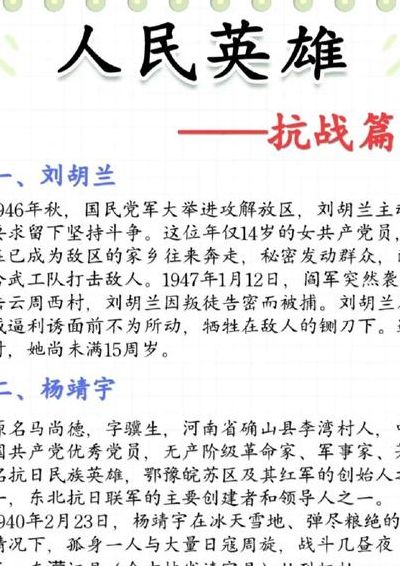 人民英雄
——抗战篇
一、刘胡兰
1946年秋，国民党军大举进攻解放区，刘胡兰主动
要求留下坚持斗争。这位年仅14岁的女共产党员，
在已成为敌区的家乡往来奔走，秘密发动群众，
合武工队打击敌人。1947年1月12日，阎军突然袭
击云周西村，刘胡兰因叛徒告密而被捕。刘胡兰
威逼利诱面前不为所动，牺牲在敌人的铡刀下。
时，她尚未满15周岁。
二、杨靖宇
原名马尚德，字骥生，河南省确山县李湾村人，
国共产党优秀党员，无产阶级革命家、军事家、
名抗日民族英雄，鄂豫皖苏区及其红军的创始人之
一，东北抗日联军的主要创建者和领导人之一。
1940年2月23日，杨靖宇在冰天雪地、弹尽粮绝的
情况下，孤身一人与大量日寇周旋，战斗几昼夜